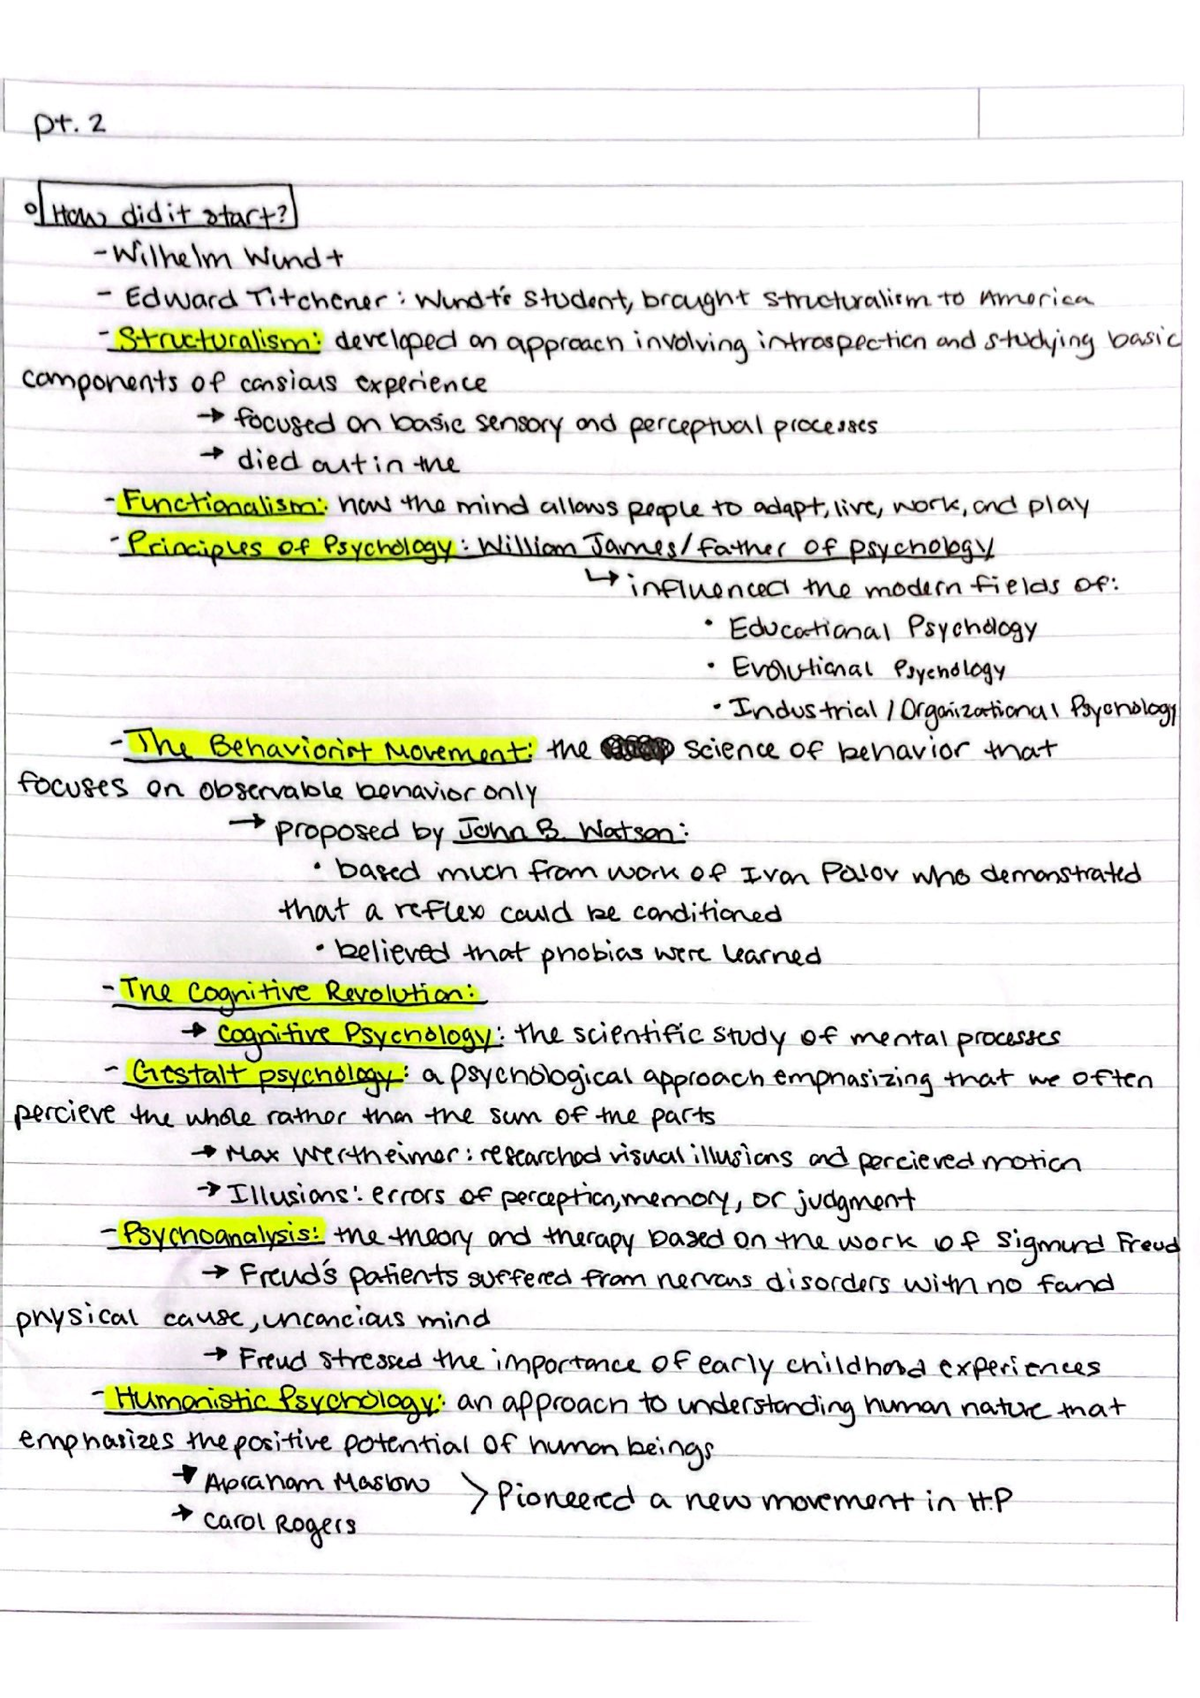 pt. 2
How did it start?
- Wilhelm Wundt
- Edward Titchener: Wundt's student, brought structuralism to America
- Structuralism: developed an approach involving introspection and studying basic
components of consious experience
→ focused on basic sensory and perceptual processes
→ died out in the
- Functionalism: how the mind allows people to adapt, live, work, and play
- Principles of Psychology: William James/father of psychology
↳ influenced the modern fields of:
• Educational Psychology
• Evolutional Psychology
• Industrial / Organizational Psychology
- The Behaviorist Movement: the science of behavior that
focuses on observable behavior only
→ proposed by John B. Watson:
• based much from work of Ivan Palov who demonstrated
that a reflex could be conditioned
• believed that phobias were learned
- The Cognitive Revolution:
→ Cognitive Psychology: the scientific study of mental processes
- Gestalt psychology: a psychological approach emphasizing that we often
percieve the whole rather than the sum of the parts
→ Max Wertheimer: researched visual illusions and percieved motion
→ Illusions: errors of perception, memory, or judgment
- Psychoanalysis: the theory and therapy based on the work of Sigmund Freud
→ Freud's patients suffered from nervous disorders with no found
physical cause, unconcious mind
→ Freud stressed the importance of early childhood experiences
- Humanistic Psychology: an approach to understanding human nature that
emphasizes the positive potential of human beings
→ Abraham Maslow > Pioneered a new movement in H.P
→ Carol Rogers